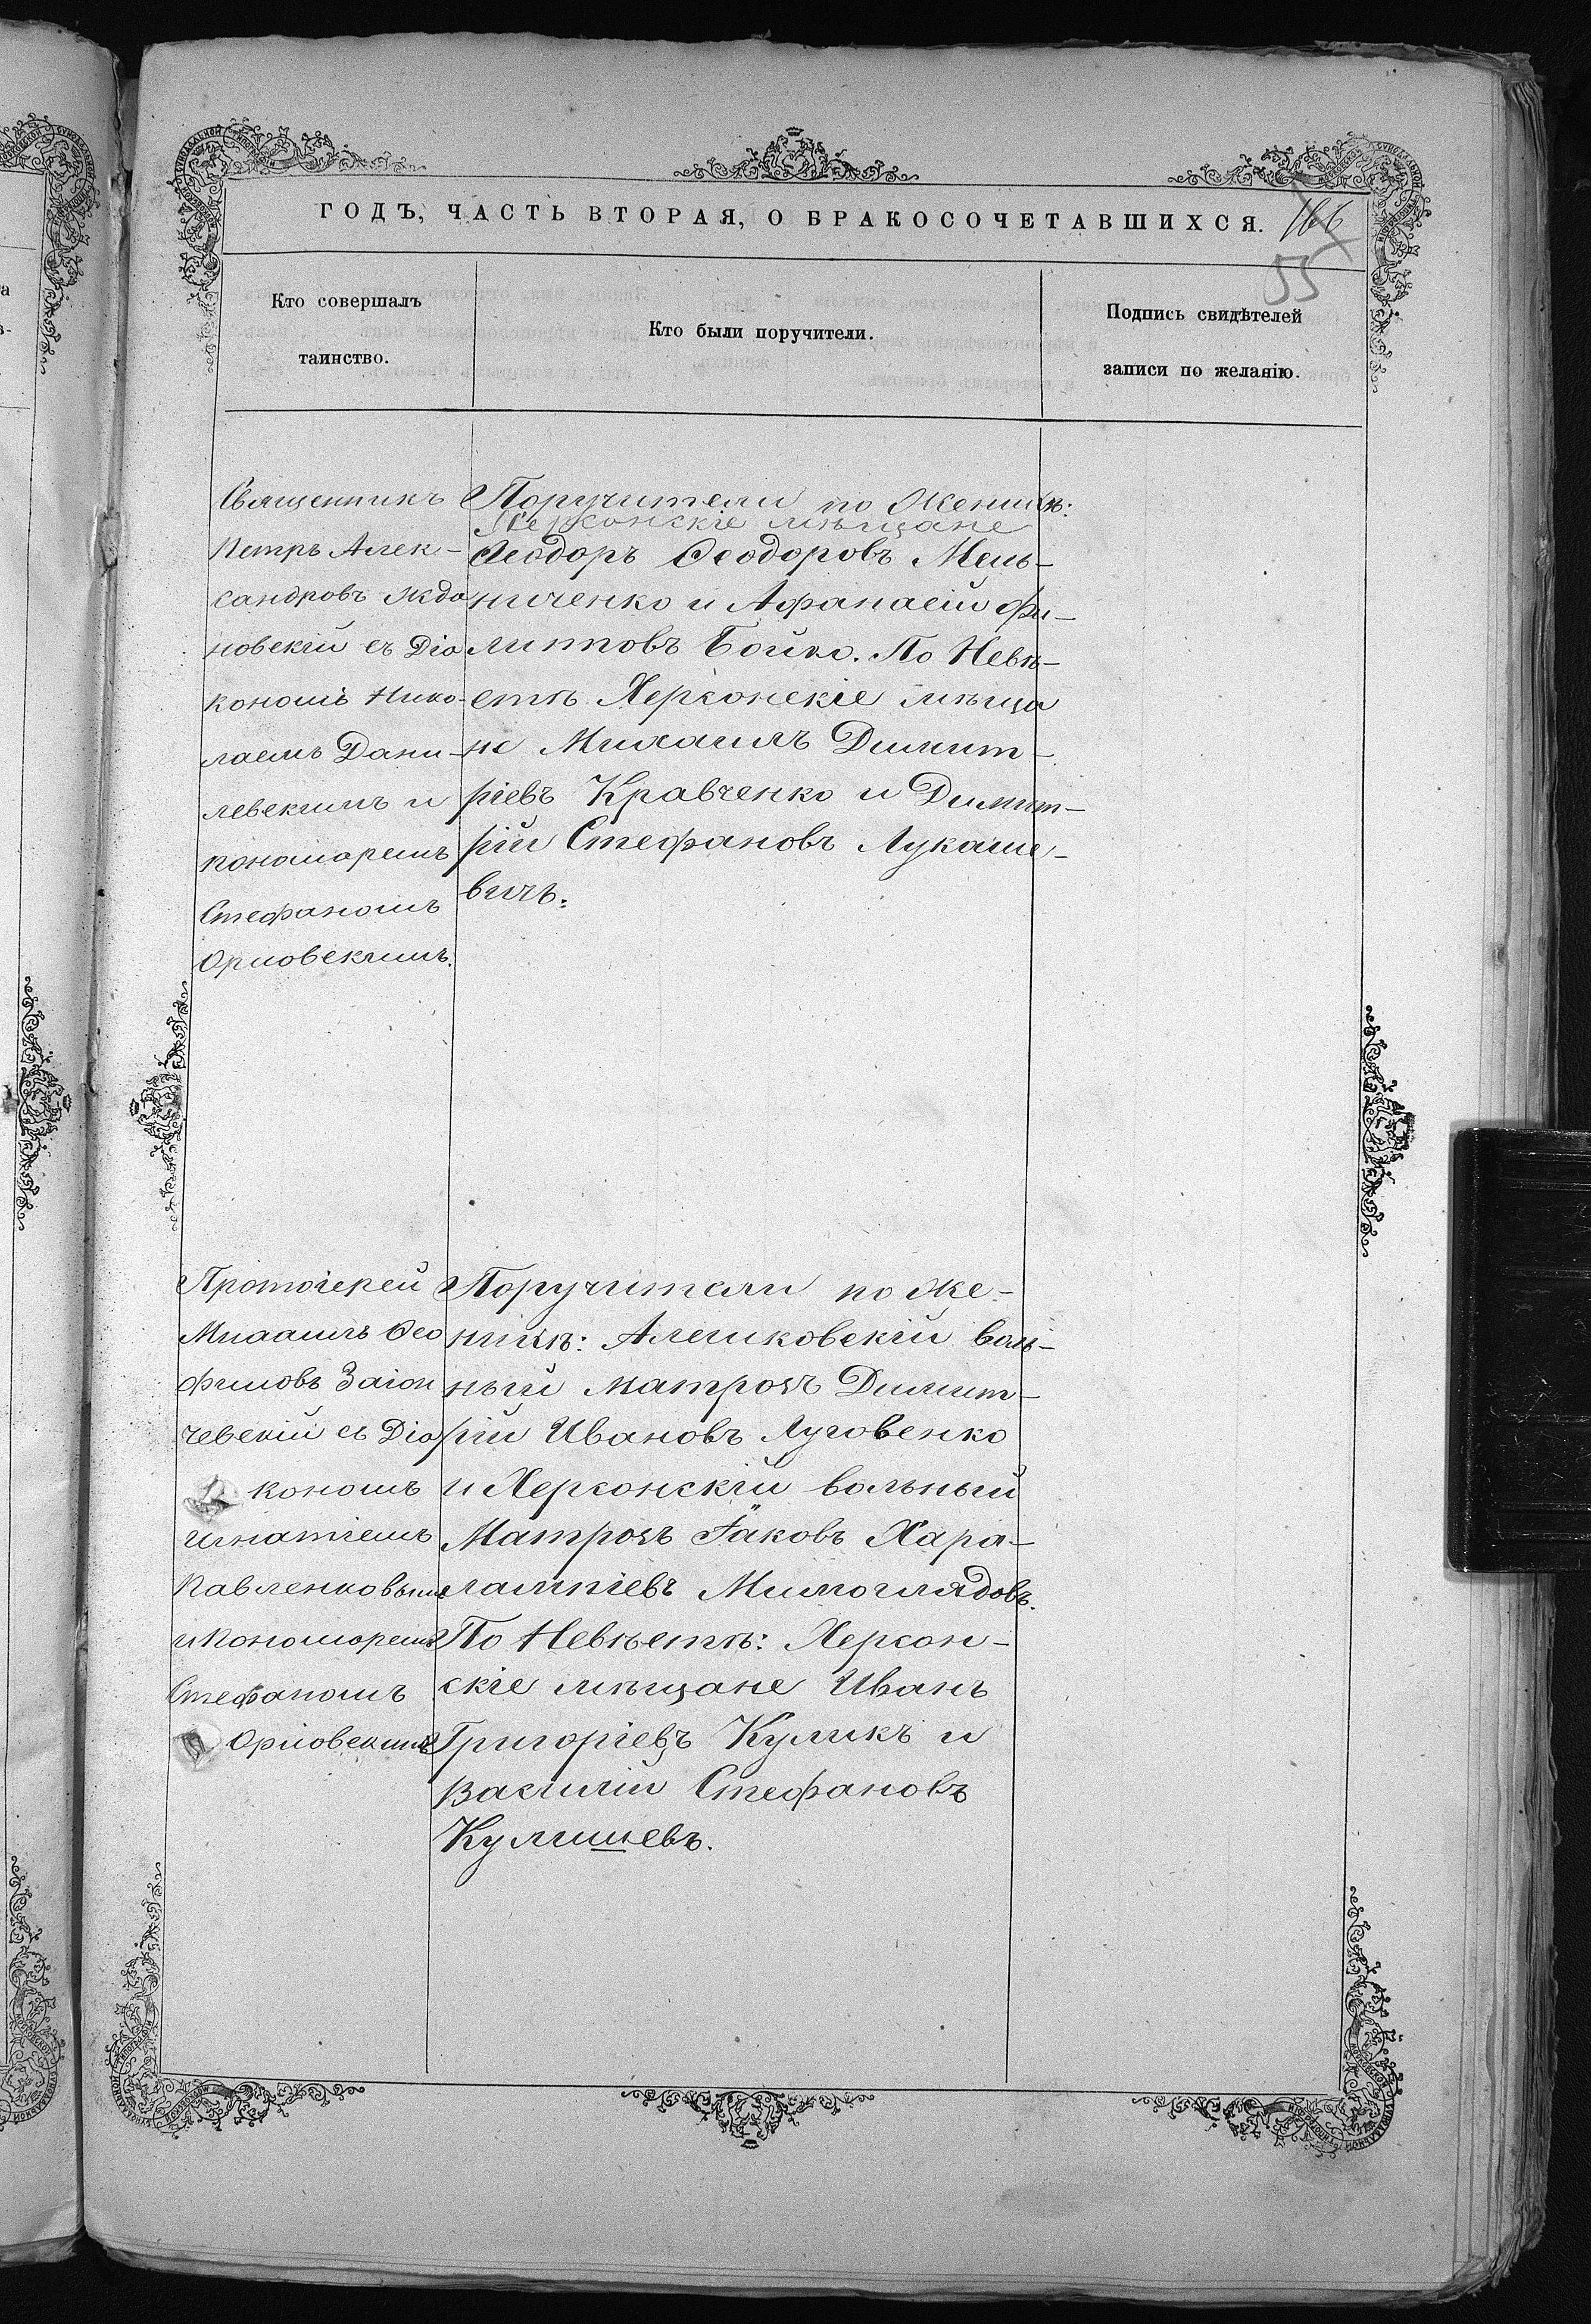 ГОДЪ, ЧАСТЬ ВТОРАЯ, О БРАКОСОЧЕТАВШИХСЯ. 166
55
Кто совершалъ
таинство.
Кто были поручители.
Подпись свидѣтелей
записи по желанію.
Священникъ
Петръ Алек-
сандровъ Жда
новскій съ Діа
кономъ Нико-
лаемъ Дани-
левскимъ и
пономаремъ
Стефаномъ
Орловскимъ.
Поручители по Женихѣ:
Херсонскіе мѣщане
Ѳеодоръ Ѳеодоровъ Мель-
ниченко и Афанасій Фи-
липповъ Бойко. По Невѣ-
стѣ Херсонскіе мѣща
не Михаилъ Димит-
ріевъ Кравченко и Димит-
рій Стефановъ Лукаше-
вичъ.
Протоіерей
Михаилъ Ѳео
филовъ Заіон
чевскій съ Діа
кономъ
Игнатіемъ
Павленковымъ
и Пономаремъ
Стефаномъ
Орловскимъ
Поручители по Же-
нихѣ: Алешковскій воль-
ный матросъ Димит-
рій Ивановъ Луговенко
и Херсонскій вольный
Матросъ Іаковъ Хара-
лампіевъ Мимоглядовъ.
По Невѣстѣ: Херсон-
скіе мѣщане Иванъ
Григоріевъ Куликъ и
Василій Стефановъ
Кулишевъ.